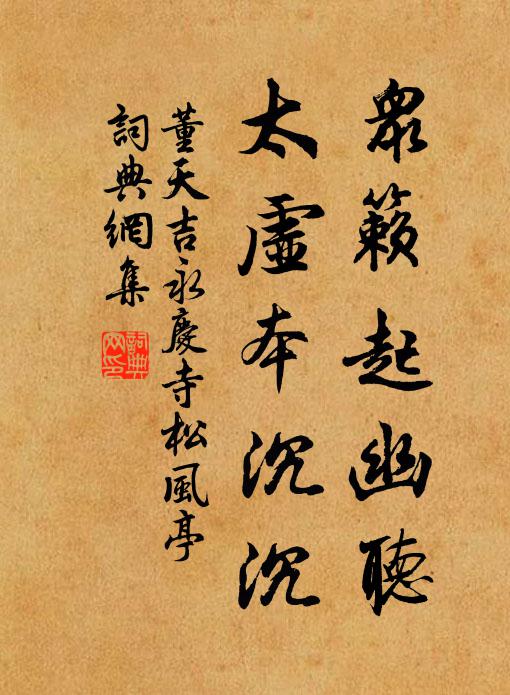 眾籟起幽聽
太虛本沉沉
董天吉永慶寺松風亭
詞典網集
詞典網印